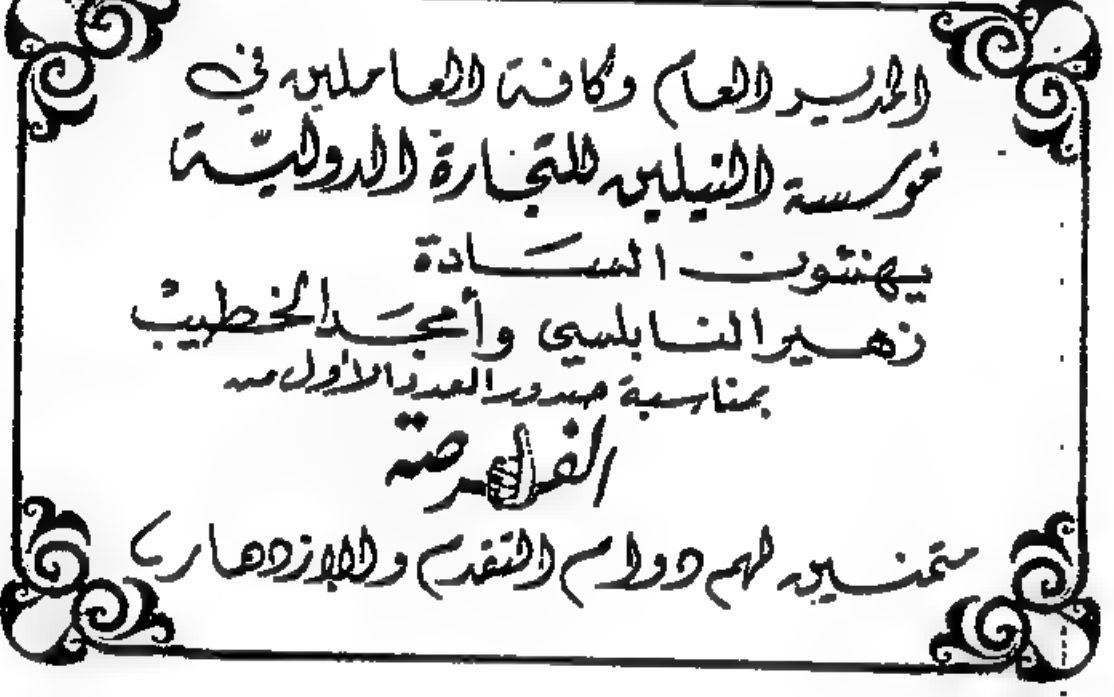 المدير العام وكافة العاملين في
مؤسسة النيلين للتجارة الدوليّة
يهنئون السادة
زهير النابلسي وأمجد الخطيب
بمناسبة صدور العدد الأول من
الفرصة
متمنين لهم دوام التقدم والازدهار